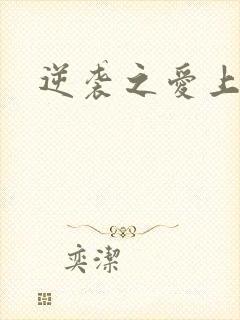 逆袭之爱上
奕潔